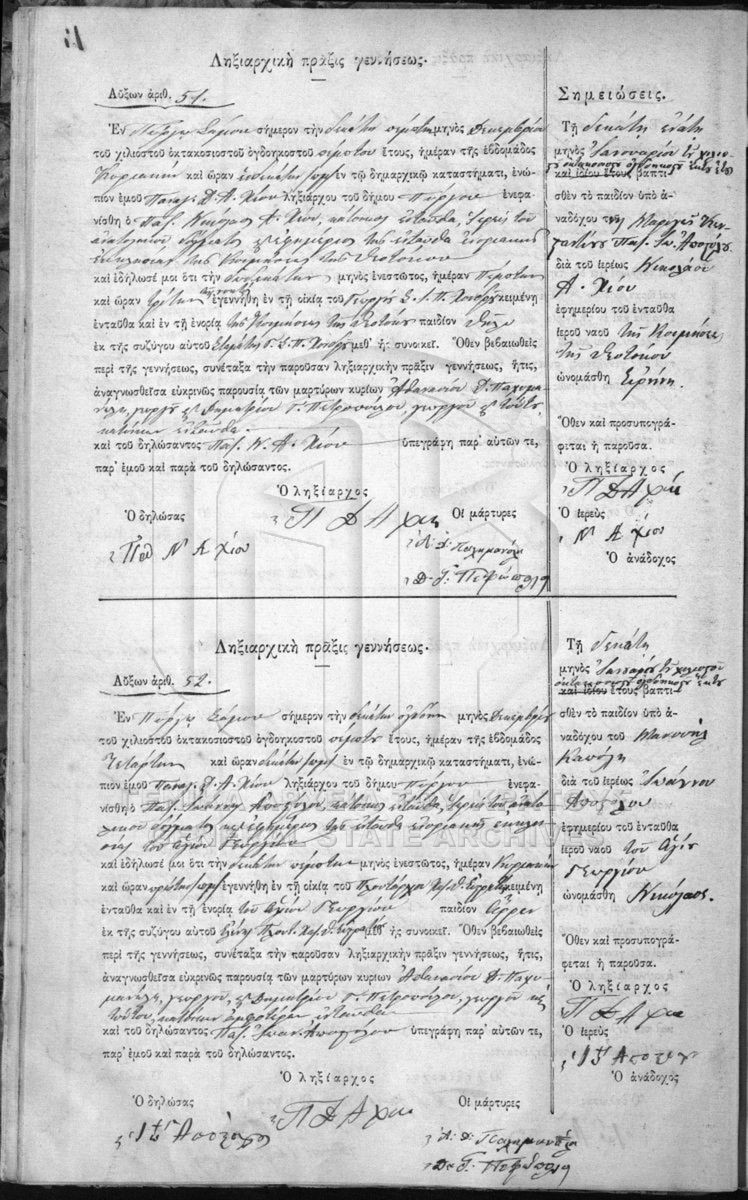 Ληξιαρχικὴ πρᾶξις γεννήσεως.
Αὔξων ἀριθ. 51.
Ἐν Πύργῳ Σάμου σήμερον τὴν δεκάτη πέμπτη μηνὸς Δεκεμβρίου
τοῦ χιλιοστοῦ ὀκτακοσιοστοῦ ὀγδοηκοστοῦ πέμπτου ἔτους, ἡμέραν τῆς ἑβδομάδος
Κυριακὴν καὶ ὥραν ἐν τῷ δημαρχικῷ καταστήματι, ἐνώ-
πιον ἐμοῦ Παναγ. Δ. Α. Χίου ληξιάρχου τοῦ δήμου Πύργου ἐνεφα-
νίσθη ὁ Παπ. Νικόλαος Α. Χίου, κάτοικος ἐνταῦθα, ἱερεὺς τοῦ
ἀνατολικοῦ δόγματος κ ἐφημέριος τῆς ἐνταῦθα ἐνοριακῆς
ἐκκλησίας τῆς Κοιμήσεως τῆς Θεοτόκου
καὶ ἐδήλωσέ μοι ὅτι τὴν δωδεκάτην μηνὸς ἐνεστῶτος, ἡμέραν Πέμπτην
καὶ ὥραν τρίτην ἐγεννήθη ἐν τῇ οἰκίᾳ τοῦ Γεωργ. κειμένῃ
ἐνταῦθα καὶ ἐν τῇ ἐνορίᾳ τῆς Κοιμήσεως τῆς Θεοτόκου παιδίον θῆλυ
ἐκ τῆς συζύγου αὐτοῦ Σταμάτας μεθ᾽ ἧς συνοικεῖ. Ὅθεν βεβαιωθεὶς
περὶ τῆς γεννήσεως, συνέταξα τὴν παροῦσαν ληξιαρχικὴν πρᾶξιν γεννήσεως, ἥτις,
ἀναγνωσθεῖσα εὐκρινῶς παρουσίᾳ τῶν μαρτύρων κυρίων Ἀθανασίου Δ. Παχυμα-
νώλη, γεωργοῦ κ Δημητρίου Γ. Πετροπούλου, γεωργοῦ κ τούτου,
κατοίκων ἐνταῦθα
καὶ τοῦ δηλώσαντος Παπ. Ν. Α. Χίου ὑπεγράφη παρ᾽ αὐτῶν τε,
παρ᾽ ἐμοῦ καὶ παρὰ τοῦ δηλώσαντος.
Ὁ ληξίαρχος
Π Δ Α Χίου
Ὁ δηλώσας
Οἱ μάρτυρες
Παπ Ν Α Χίου
Α. Δ. Παχυμανώλη
Δ. Γ. Πετρόπουλο
Σημειώσεις.
Τῇ δεκάτῃ ἐνάτῃ
μηνὸς Ἰανουαρίου τοῦ χιλιο-
στοῦ ὀκτακοσιοστοῦ ὀγδοηκοστοῦ ἕκτου ἔτους
καὶ ἰδίου ἔτους βαπτι-
σθὲν τὸ παιδίον ὑπὸ ἀ-
ναδόχου τῆς Μαρίας
Παπ. Ἰω. Ἀποστόλου
διὰ τοῦ ἱερέως Νικολάου
Α. Χίου
ἐφημερίου τοῦ ἐνταῦθα
ἱεροῦ ναοῦ τῆς Κοιμήσεως
τῆς Θεοτόκου
ὠνομάσθη Εἰρήνη.
Ὅθεν καὶ προσυπογρά-
φεται ἡ παροῦσα.
Ὁ ληξίαρχος
Π Δ Α Χίου
Ὁ ἱερεὺς
Ν Α Χίου
Ὁ ἀνάδοχος
Ληξιαρχικὴ πρᾶξις γεννήσεως.
Αὔξων ἀριθ. 52.
Ἐν Πύργῳ Σάμου σήμερον τὴν δεκάτην ὀγδόην μηνὸς Δεκεμβρίου
τοῦ χιλιοστοῦ ὀκτακοσιοστοῦ ὀγδοηκοστοῦ πέμπτου ἔτους, ἡμέραν τῆς ἑβδομάδος
Τετάρτην καὶ ὥραν δεκάτην π.μ. ἐν τῷ δημαρχικῷ καταστήματι, ἐνώ-
πιον ἐμοῦ Παναγ. Δ. Α. Χίου ληξιάρχου τοῦ δήμου Πύργου ἐνεφα-
νίσθη ὁ Παπ. Ἰωάννης Ἀποστόλου, κάτοικος ἐνταῦθα, ἱερεὺς τοῦ ἀνατο-
λικοῦ δόγματος κ ἐφημέριος τῆς ἐνταῦθα ἐνοριακῆς ἐκκλη-
σίας τοῦ Ἁγίου Γεωργίου
καὶ ἐδήλωσέ μοι ὅτι τὴν δεκάτην πέμπτην μηνὸς ἐνεστῶτος, ἡμέραν Κυριακὴν
καὶ ὥραν πρώτην ἐγεννήθη ἐν τῇ οἰκίᾳ τοῦ Πλουτάρχου κειμένῃ
ἐνταῦθα καὶ ἐν τῇ ἐνορίᾳ τοῦ Ἁγίου Γεωργίου παιδίον ἄρρεν
ἐκ τῆς συζύγου αὐτοῦ Ἑλένης Πλουτ. μεθ᾽ ἧς συνοικεῖ. Ὅθεν βεβαιωθεὶς
περὶ τῆς γεννήσεως, συνέταξα τὴν παροῦσαν ληξιαρχικὴν πρᾶξιν γεννήσεως, ἥτις,
ἀναγνωσθεῖσα εὐκρινῶς παρουσίᾳ τῶν μαρτύρων κυρίων Ἀθανασίου Δ. Παχυ-
μανώλη, γεωργοῦ, κ Δημητρίου Γ. Πετροπούλου, γεωργοῦ κ
τούτου, κατοίκων ἀμφοτέρων ἐνταῦθα
καὶ τοῦ δηλώσαντος Παπ. Ἰωάν. Ἀποστόλου ὑπεγράφη παρ᾽ αὐτῶν τε,
παρ᾽ ἐμοῦ καὶ παρὰ τοῦ δηλώσαντος.
Ὁ ληξίαρχος
Ὁ δηλώσας
Π Δ Α Χίου
Οἱ μάρτυρες
Ἀπόστολος
Α. Δ. Παχυμανώλη
Δ. Γ. Πετρόπουλο
Τῇ δεκάτῃ
μηνὸς Ἰανουαρίου τοῦ χιλιοστοῦ
ὀκτακοσιοστοῦ ὀγδοηκοστοῦ ἕκτου
καὶ ἰδίου ἔτους βαπτι-
σθὲν τὸ παιδίον ὑπὸ ἀ-
ναδόχου τοῦ Μανουὴλ
Κανόλη
διὰ τοῦ ἱερέως Ἰωάννου
Ἀποστόλου
ἐφημερίου τοῦ ἐνταῦθα
ἱεροῦ ναοῦ τοῦ Ἁγίου
Γεωργίου
ὠνομάσθη Νικόλαος.
Ὅθεν καὶ προσυπογρά-
φεται ἡ παροῦσα.
Ὁ ληξίαρχος
Π Δ Α Χίου
Ὁ ἱερεὺς
Ὁ ἀνάδοχος
STATE ARCHIVES